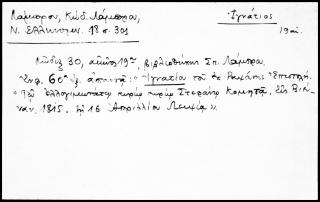 Λάμπρου, Κώδ. Λάμπρου,
Ν. Ελληνομν. 18 σ. 301
Ἰγνάτιος
19 αἰ.
Κῶδιξ 30, αἰῶνος 19ου, βιβλιοθήκης Σπ. Λάμπρου.
Ἰγνατίου τοῦ ἐκ Ἐπιστολή.
"Τῷ ἐλλογιμωτάτῳ κυρίῳ κυρίῳ Στεφάνῳ Κομητᾷ. Εἰς Βιέν-
ναν. 1815. τῇ 16 Ἀπριλλίου